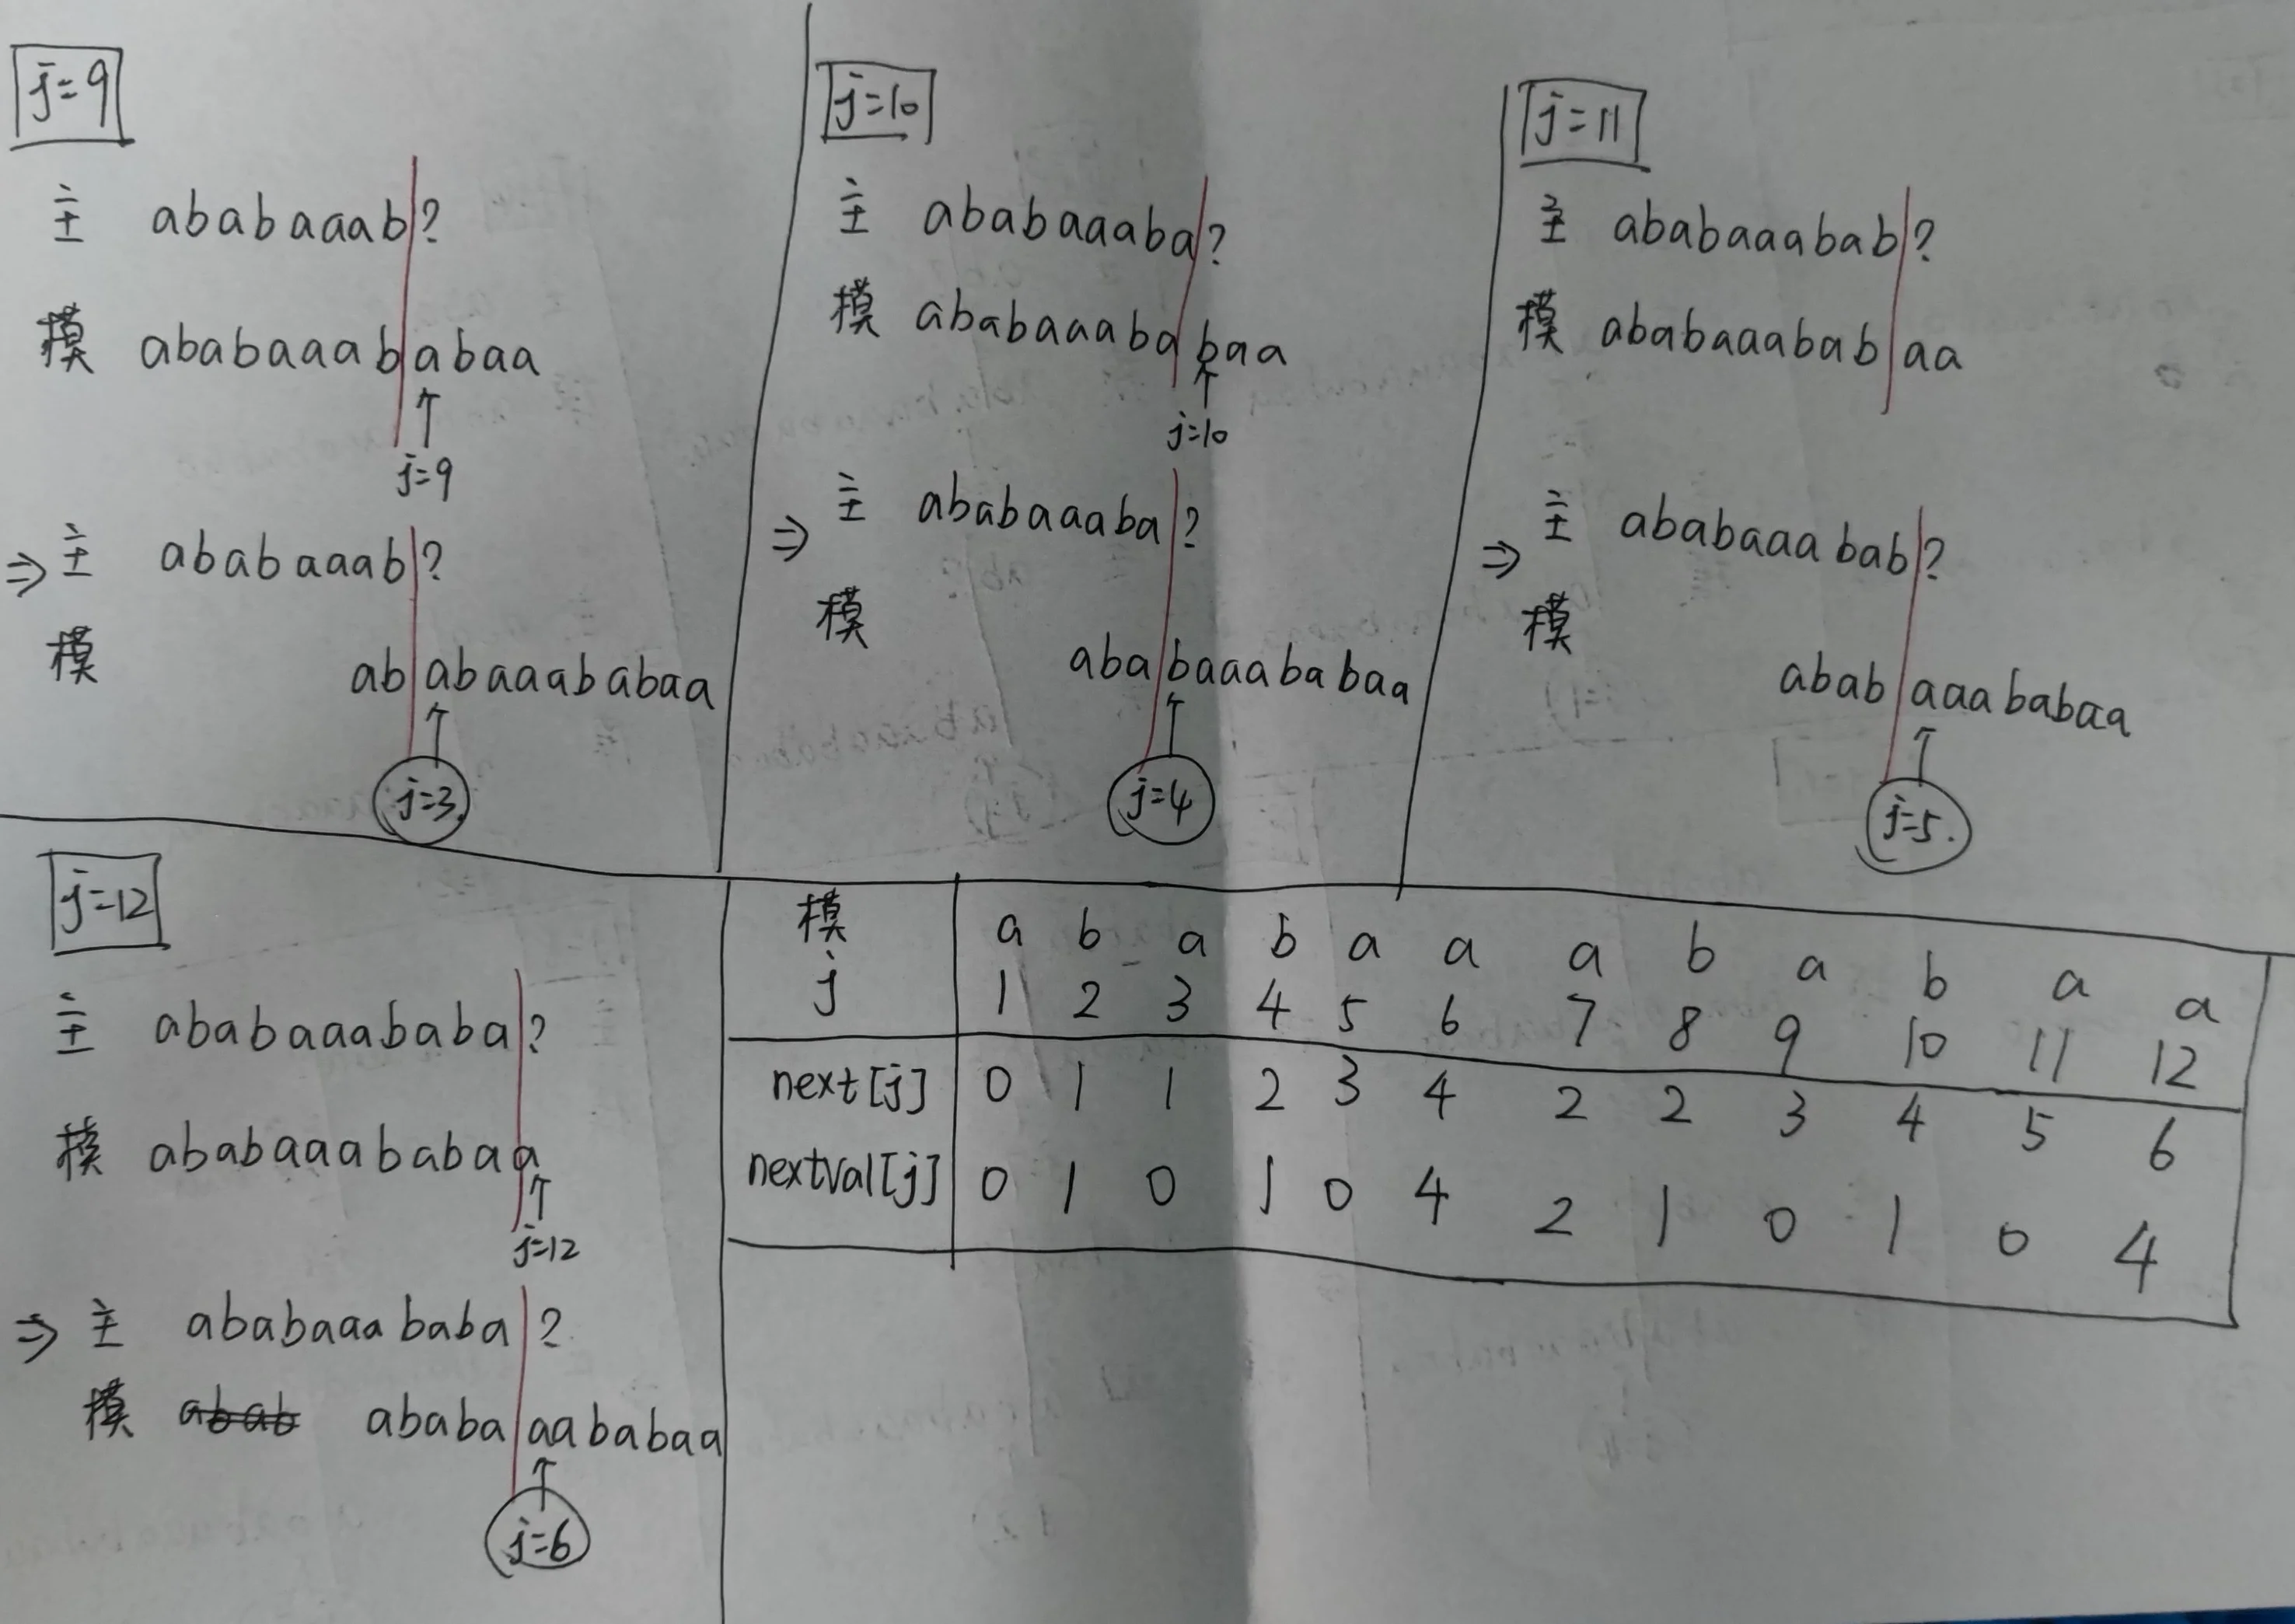 j=9
主 ababaaab|?
模 ababaaab|abaa
↑
j=9
⇒ 主 ababaaab|?
模 ab|abaaababaa
↑
j=3.
j=10
主 ababaaaba|?
模 ababaaaba|baa
↑
j=10
⇒ 主 ababaaaba|?
模 aba|baaababaa
↑
j=4
j=11
主 ababaaabab|?
模 ababaaabab|aa
⇒ 主 ababaaabab|?
模 abab|aaababaa
↑
j=5.
j=12
主 ababaaababa|?
模 ababaaababaa
↑
j=12
⇒ 主 ababaaababa|?
模 abab ababa|aababaa
↑
j=6
模 a b a b a a a b a b a a
j 1 2 3 4 5 6 7 8 9 10 11 12
next[j] 0 1 1 2 3 4 2 2 3 4 5 6
nextval[j] 0 1 0 1 0 4 2 1 0 1 0 4